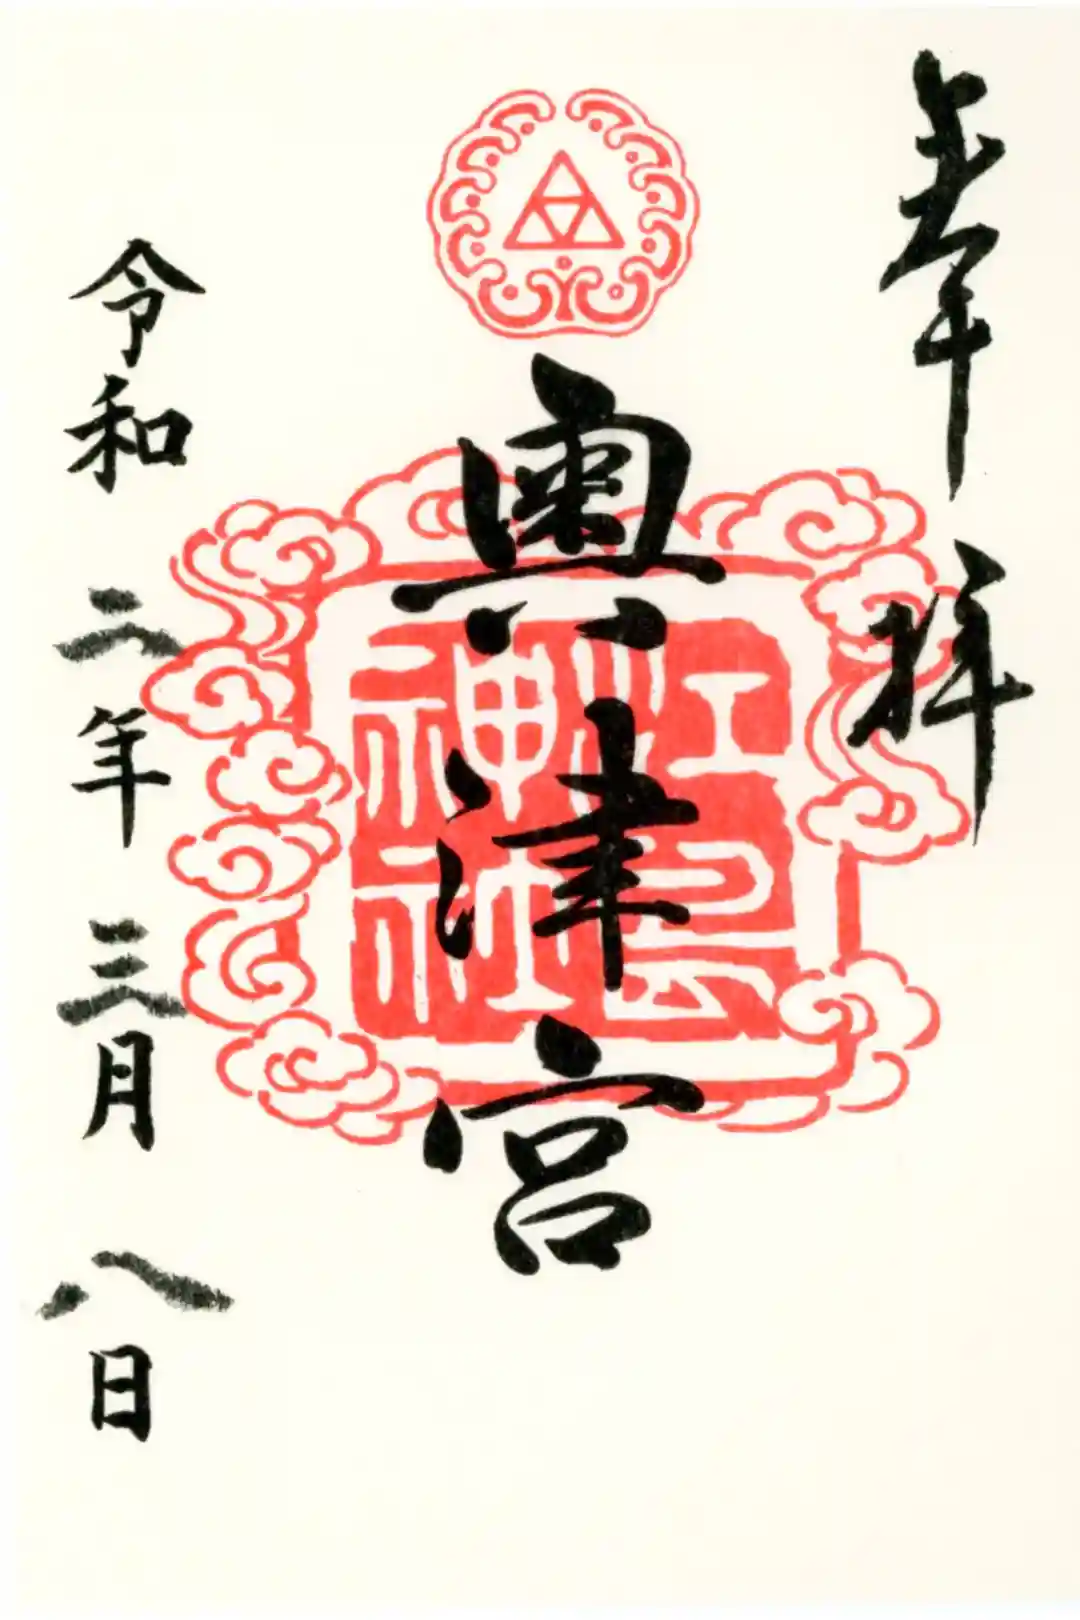 奉拝
奥津宮
江島
神社
令和二年三月八日